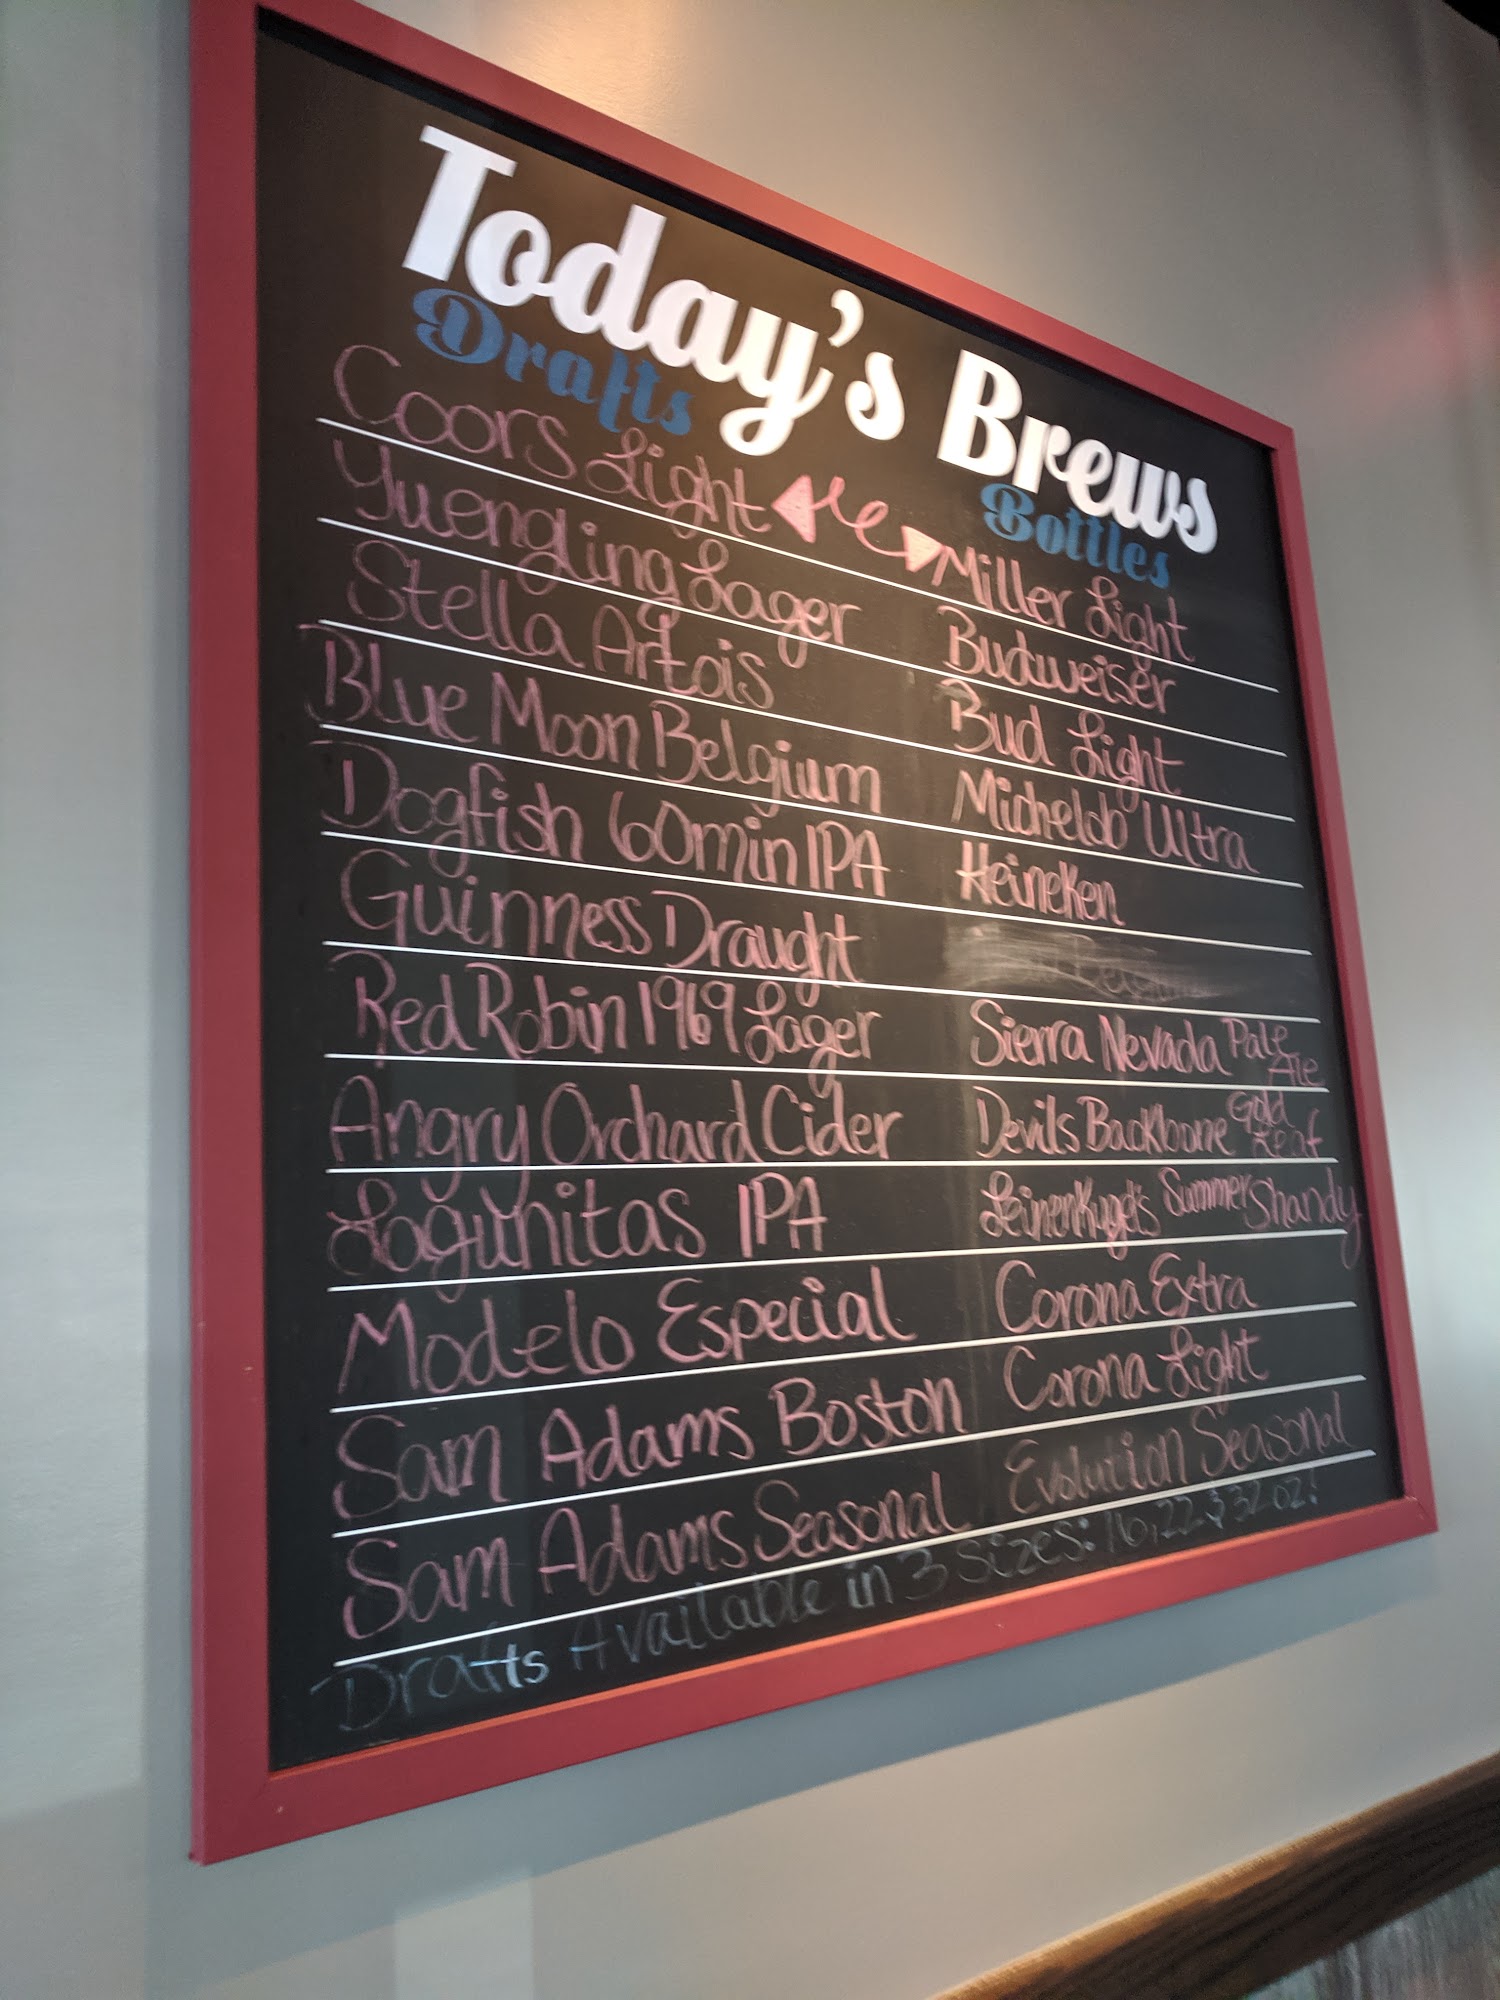 Today's Brews
Drafts
Coors Light
Yuengling Lager
Stella Artois
Blue Moon Belgium
Dogfish 60min IPA
Guinness Draught
Red Robin 1969 Lager
Angry Orchard Cider
Lagunitas IPA
Modelo Especial
Sam Adams Boston
Sam Adams Seasonal
Bottles
Miller Light
Budweiser
Bud Light
Michelob Ultra
Heineken
Sierra Nevada Pale Ale
Devils Backbone Gold Leaf
Leinenkugel's Summer Shandy
Corona Extra
Corona Light
Evolution Seasonal
Drafts Available in 3 Sizes: 16, 22 & 32 oz!